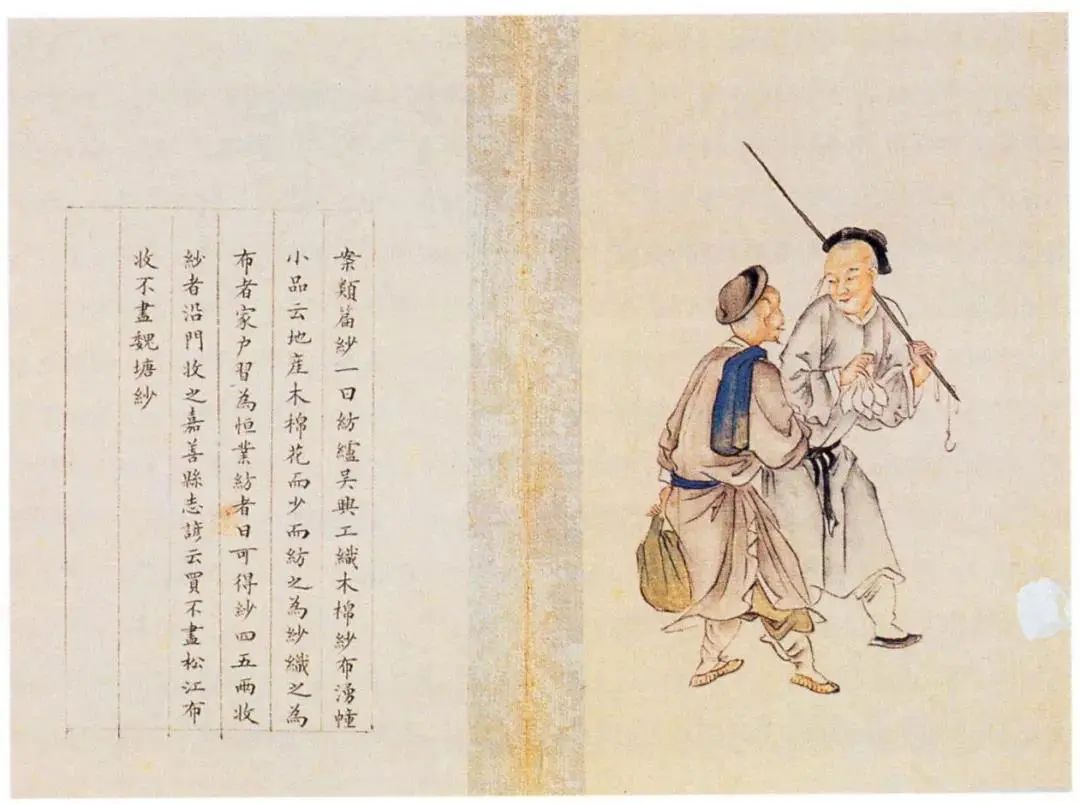 案類篇紗一曰紡纑吳興工織木棉紗布湧幢
小品云地產木棉花而少而紡之為紗織之為
布者家戶習為恒業紡者日可得紗四五兩收
紗者沿門收之嘉善縣志諺云買不盡松江布
收不盡魏塘紗